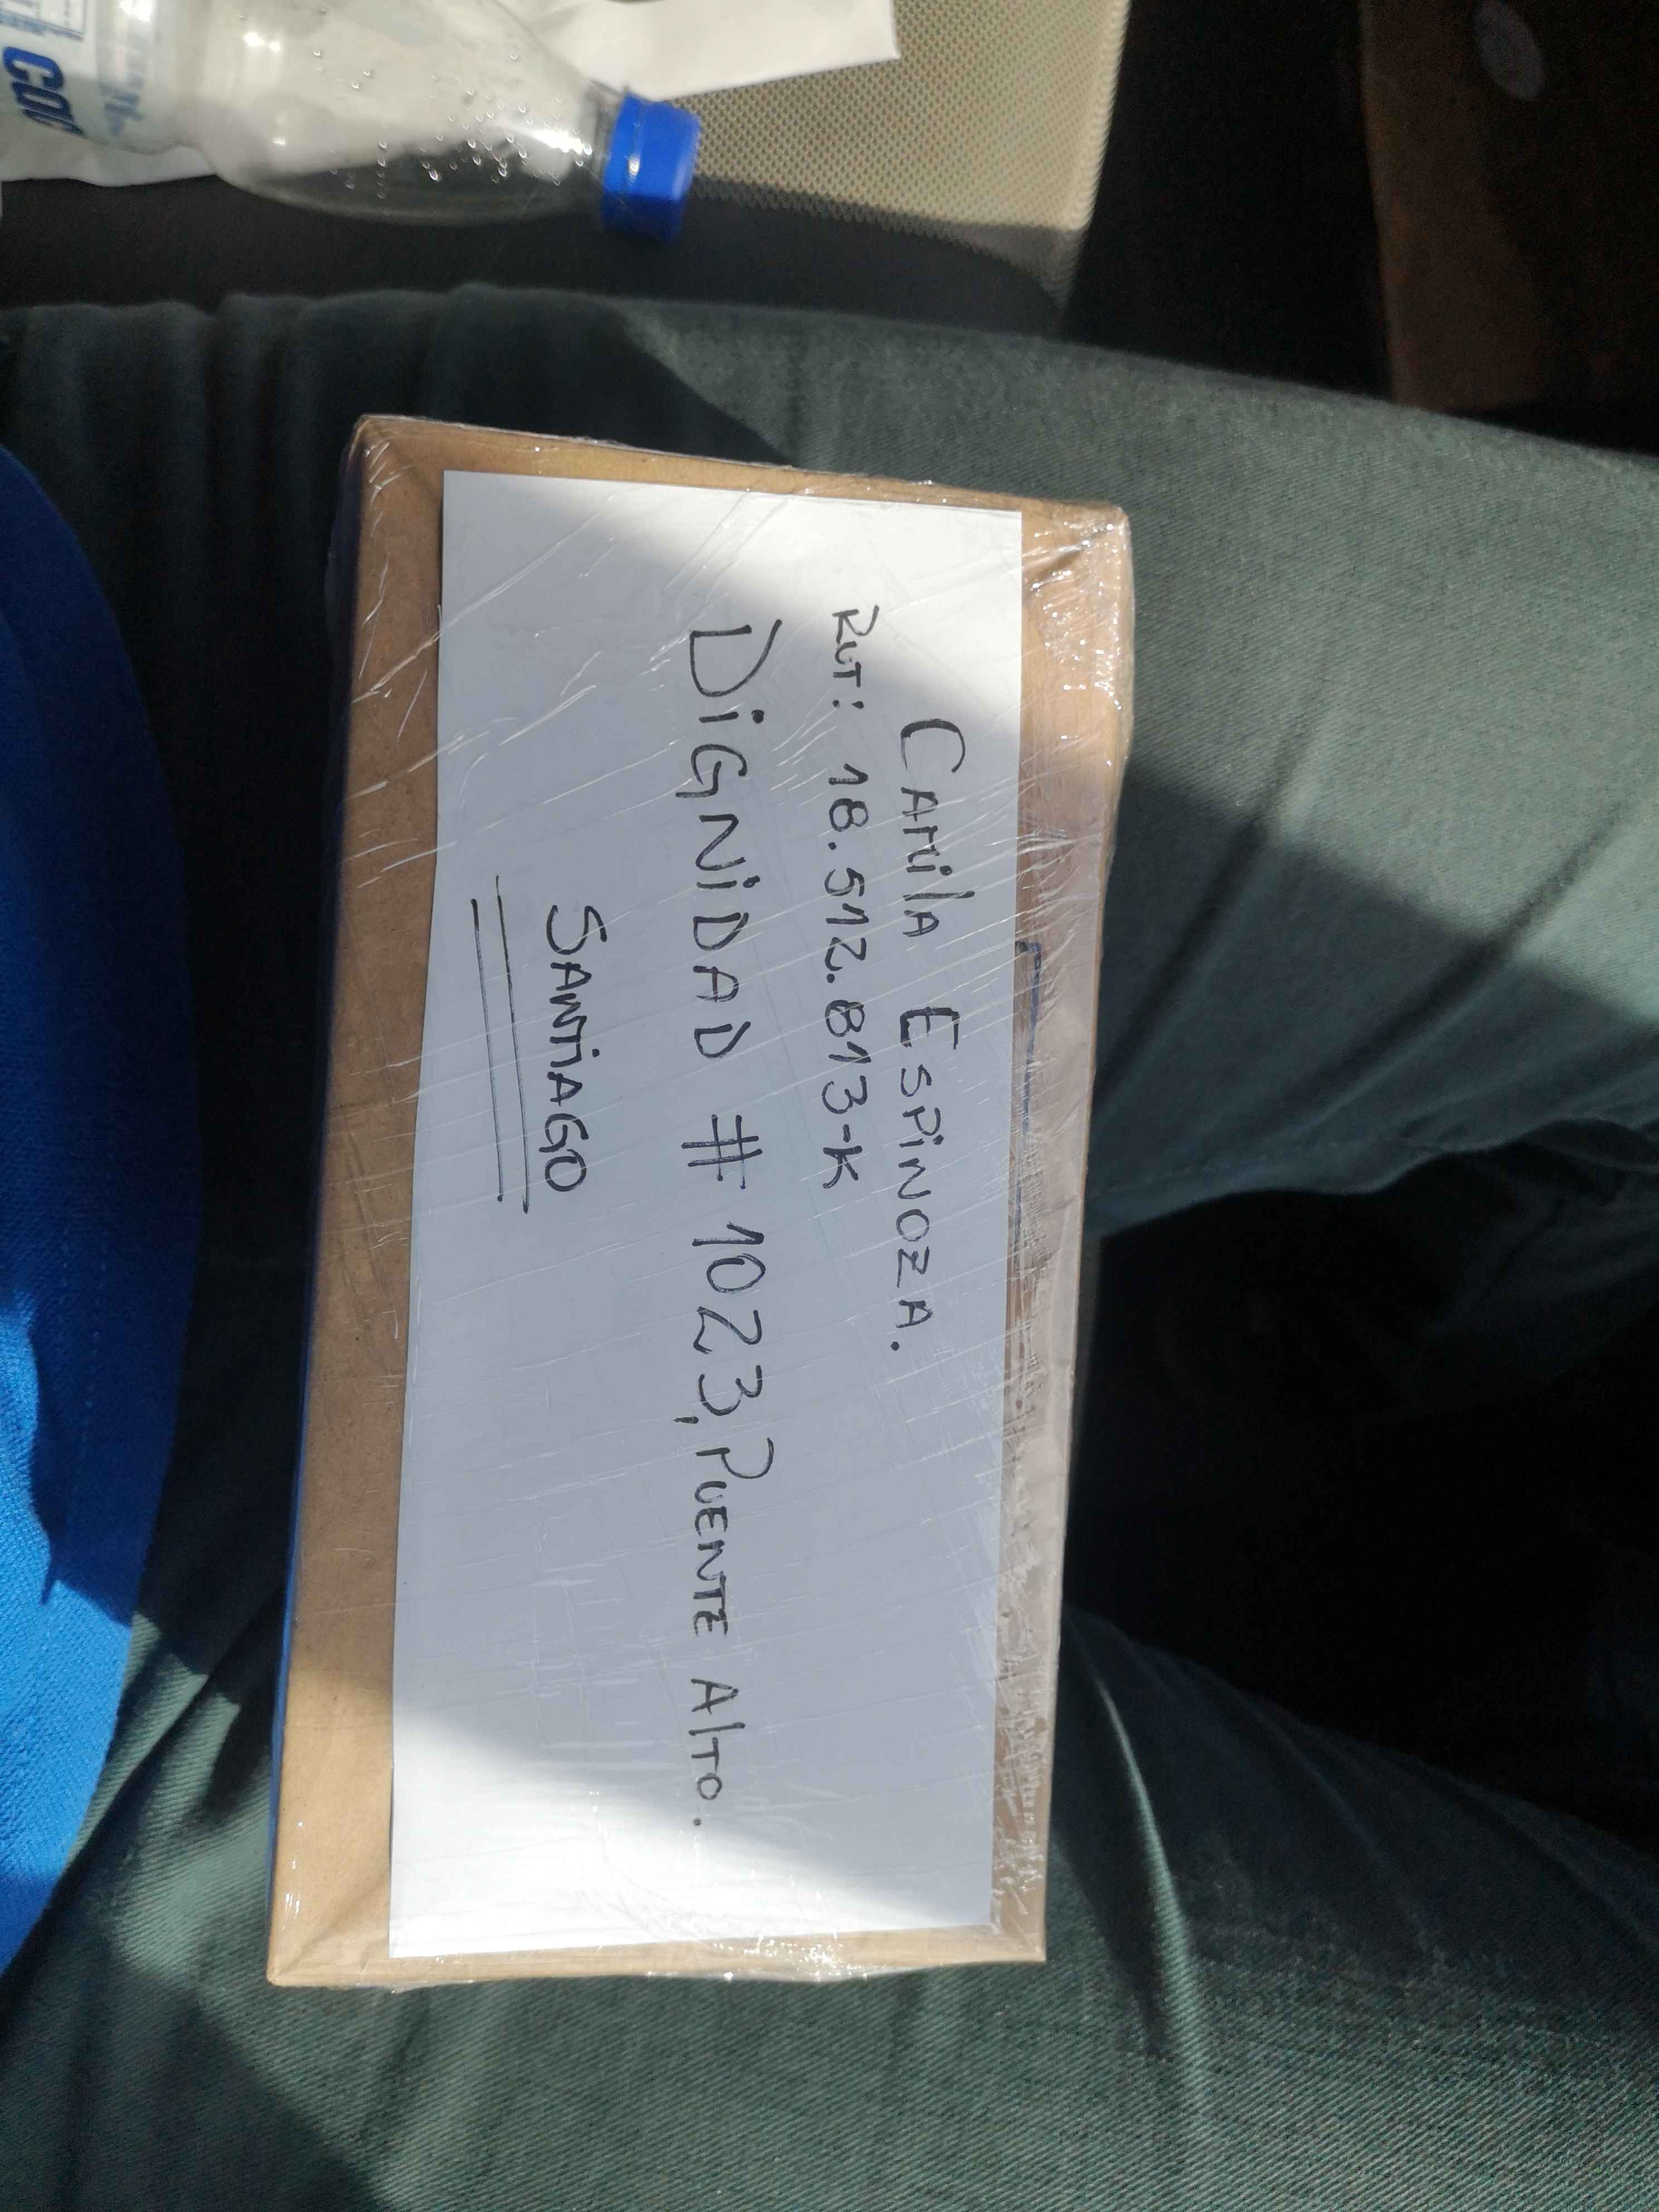 Camila Espinoza.
Rut: 18.512.813-K
Dignidad # 1023, Puente Alto.
Santiago